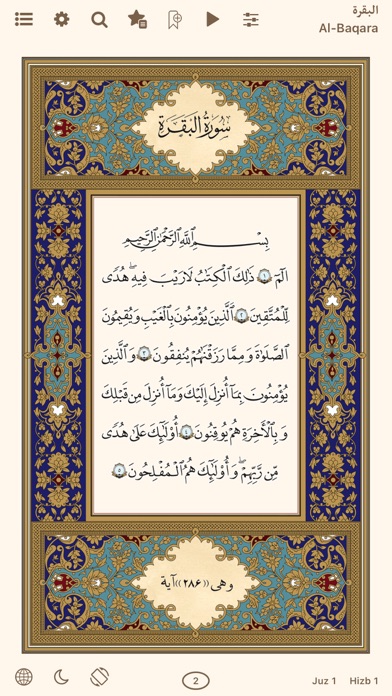 البقرة
Al-Baqara
سُورَةُ الْبَقَرَةِ
بِسْمِ اللَّهِ الرَّحْمَٰنِ الرَّحِيمِ
الٓمٓ ١ ذَٰلِكَ ٱلْكِتَٰبُ لَا رَيْبَ ۛ فِيهِ ۛ هُدًى
لِّلْمُتَّقِينَ ٢ ٱلَّذِينَ يُؤْمِنُونَ بِٱلْغَيْبِ وَيُقِيمُونَ
ٱلصَّلَوٰةَ وَمِمَّا رَزَقْنَٰهُمْ يُنفِقُونَ ٣ وَٱلَّذِينَ
يُؤْمِنُونَ بِمَآ أُنزِلَ إِلَيْكَ وَمَآ أُنزِلَ مِن قَبْلِكَ
وَبِٱلْءَاخِرَةِ هُمْ يُوقِنُونَ ٤ أُو۟لَٰٓئِكَ عَلَىٰ هُدًى
مِّن رَّبِّهِمْ ۖ وَأُو۟لَٰٓئِكَ هُمُ ٱلْمُفْلِحُونَ ٥
وهى ((٢٨٦)) آية
2
Juz 1 Hizb 1